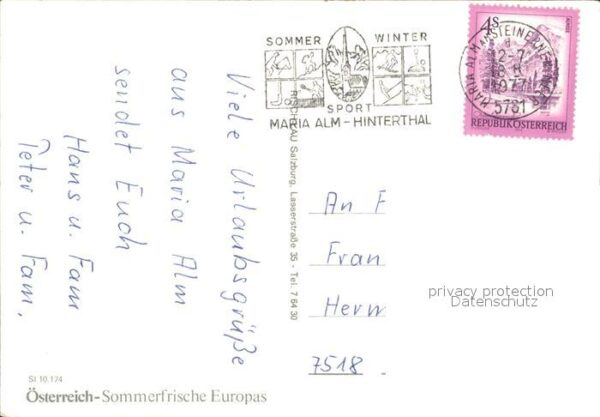 Viele Urlaubsgrüße
aus Maria Alm
sendet Euch
Hans u. Fam
Peter u. Fam.
SOMMER WINTER
SPORT
MARIA ALM - HINTERTHAL
4S
MARIA ALM
1977
5761
REPUBLIK ÖSTERREICH
Salzburg, Lasserstraße 35 - Tel. 7 64 30
An F
Fran
Herrn
7518
privacy protection
Datenschutz
SI 10.174
Österreich-Sommerfrische Europas